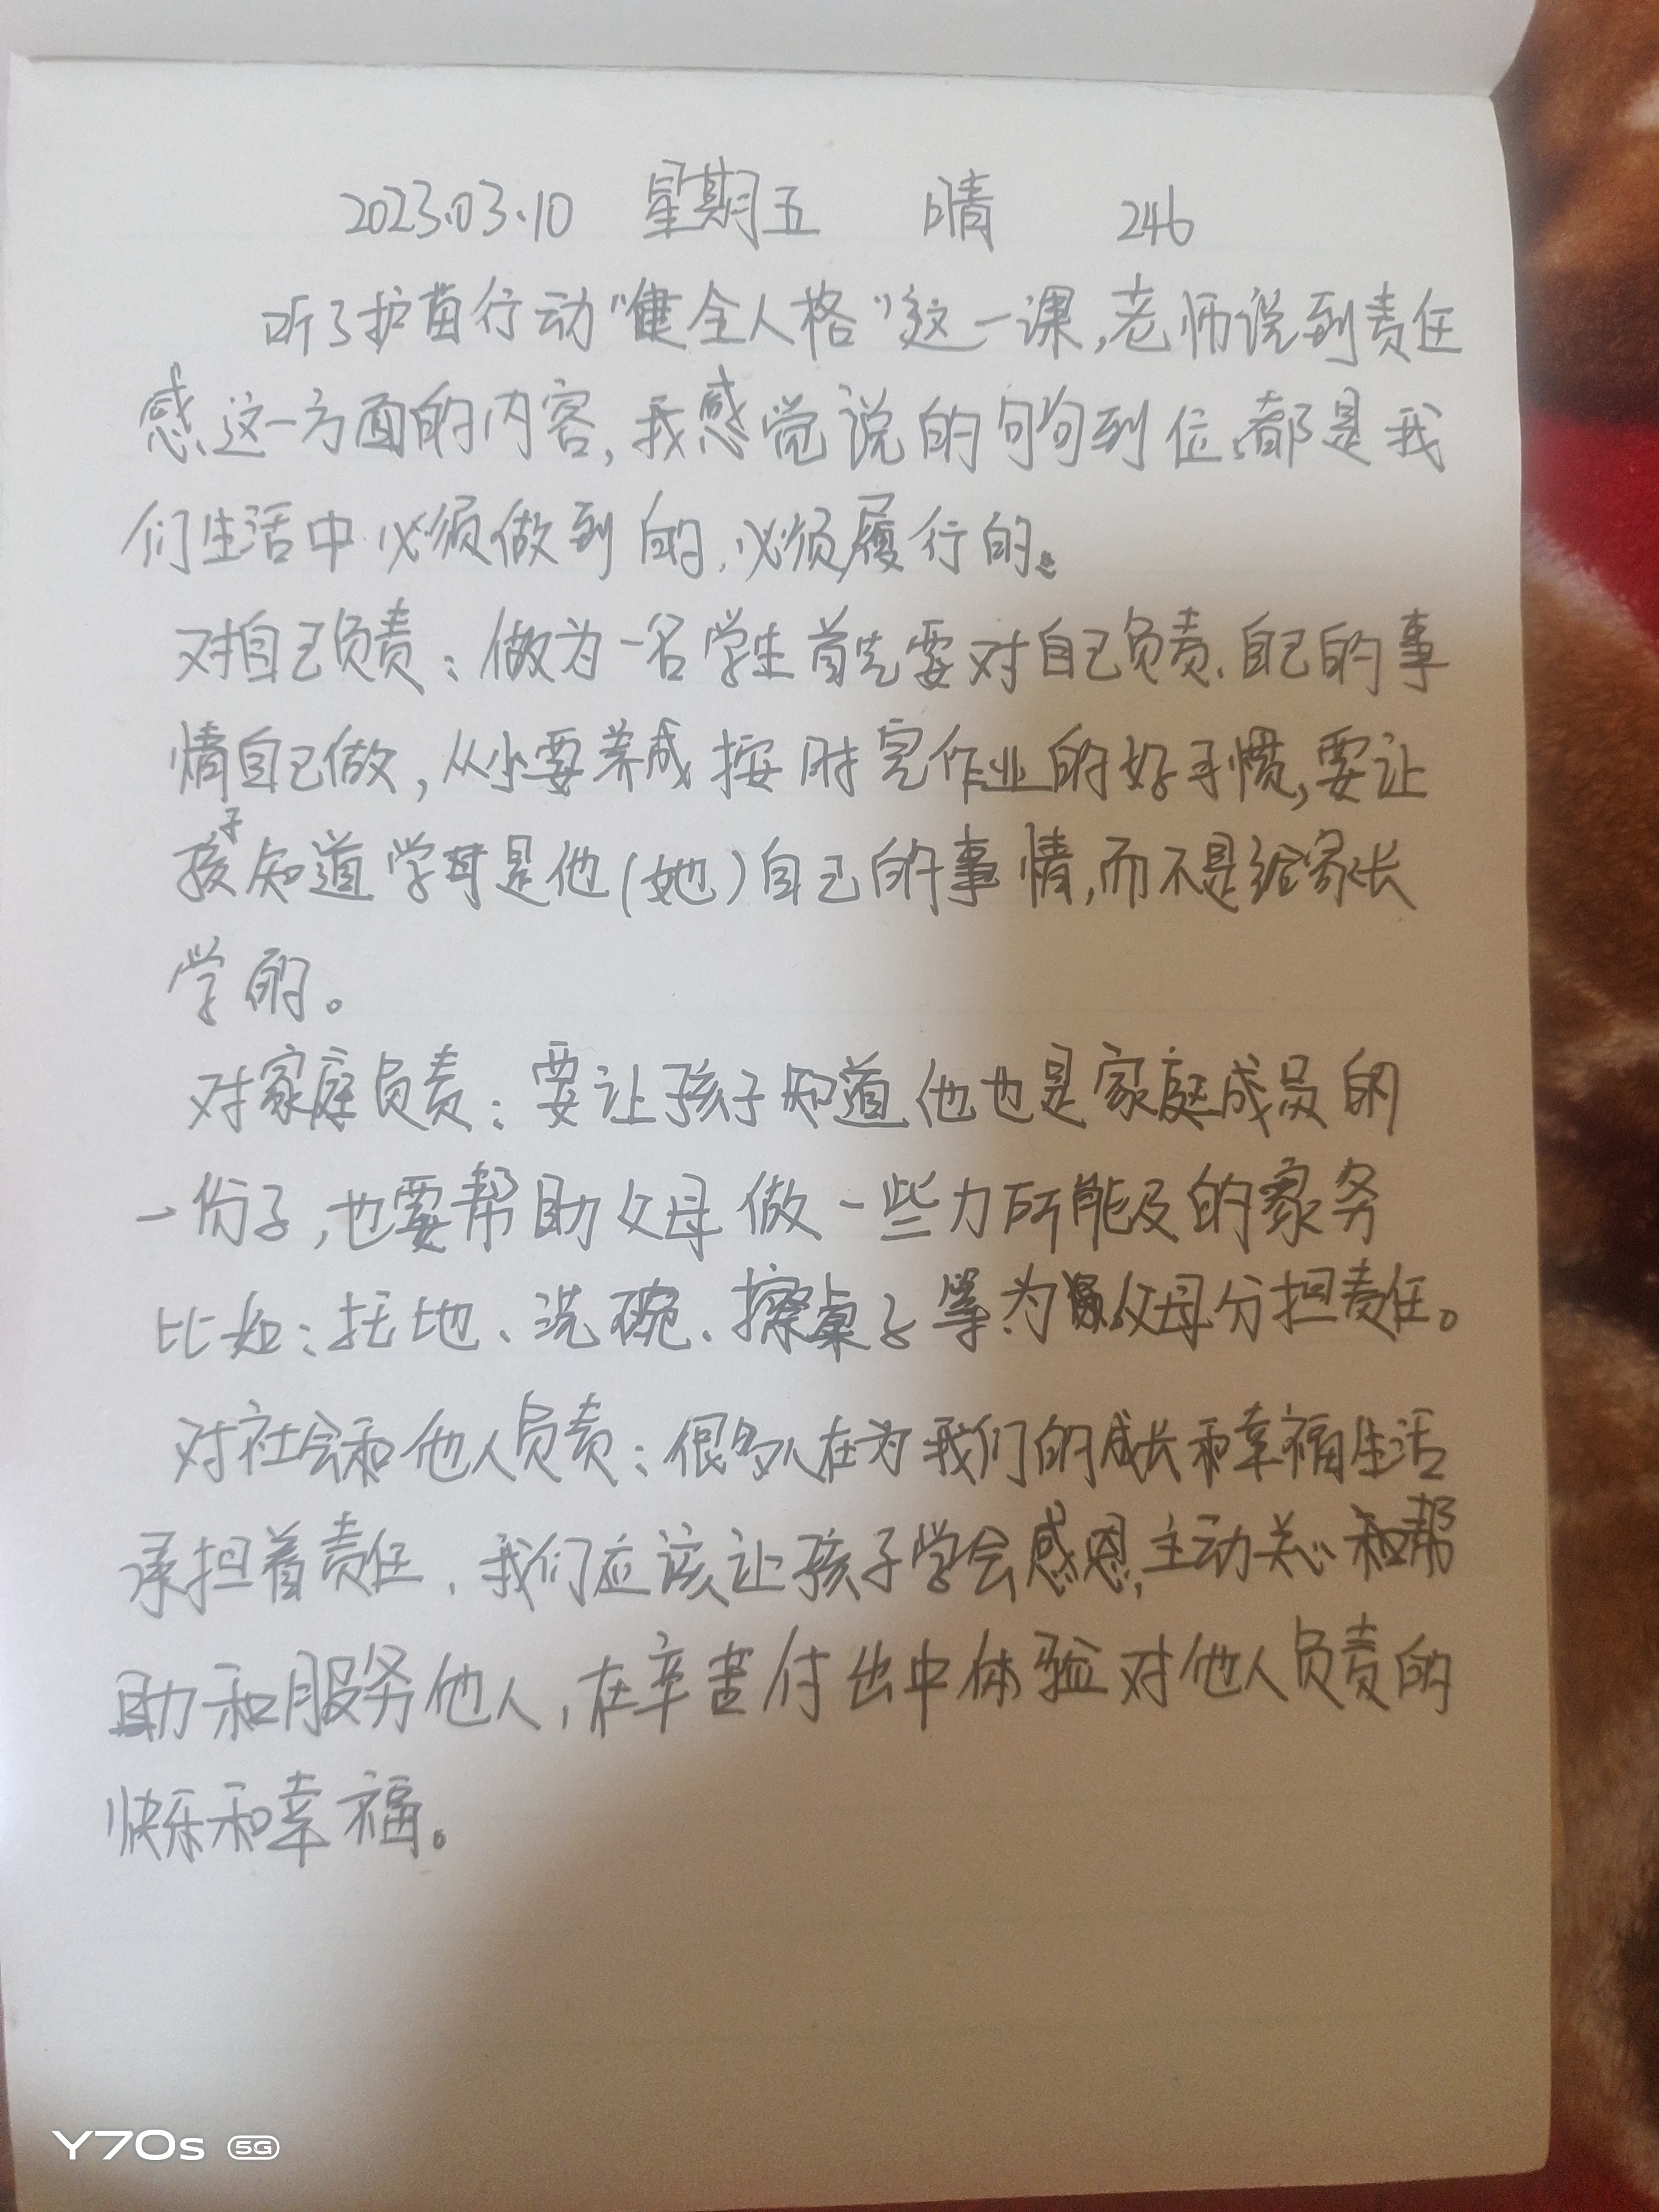 2023.03.10 星期五 晴 246
听了护苗行动“健全人格”这一课,老师说到责任
感,这一方面的内容,我感觉说的句句到位,都是我
们生活中必须做到的,必须履行的。
对自己负责:做为一名学生首先要对自己负责.自己的事
情自己做,从小要养成按时完作业的好习惯,要让
孩子知道学习是他(她)自己的事情,而不是给家长
学的。
对家庭负责:要让孩子知道他也是家庭成员的
一份子,也要帮助父母做一些力所能及的家务
比如:拖地、洗碗、擦桌子等为父母分担责任。
对社会和他人负责:很多人在为我们的成长和幸福生活
承担着责任,我们应该让孩子学会感恩,主动关心和帮
助和服务他人,在辛苦付出中体验对他人负责的
快乐和幸福。
Y70s 5G